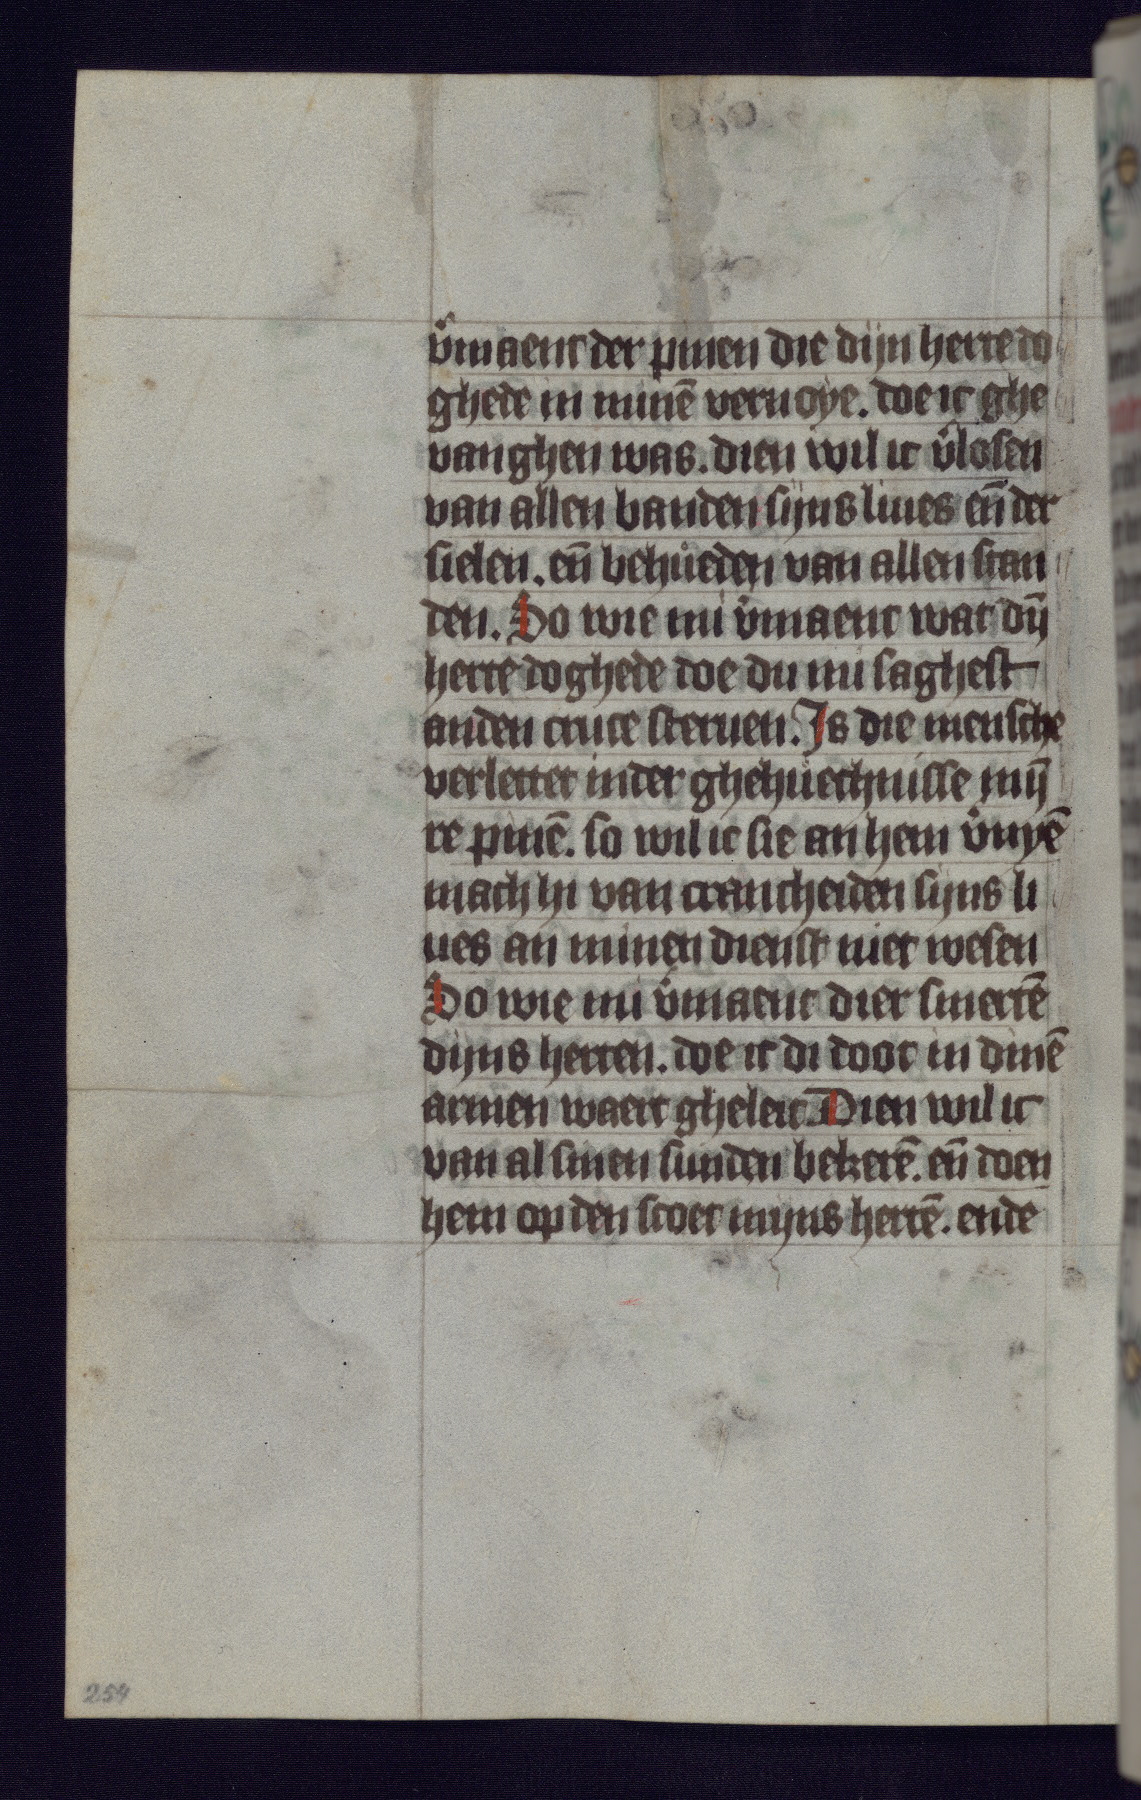 v̓maent der pinen die dijn herte do
ghede in minē vernoye. doe ic ghe
vanghen was. dien wil ic v̓losen
van allen banden sijns liues en̄ der
sielen. en̄ behůeden van allen scan
den. So wie mi v̓maent wat dij̄
herte doghede doe du mi saghest
anden cruce steruen. Is die mensche
verlettet inder ghehůechnisse mij̄
re pinē. so wil ic sie an hem v̓nyē
mach hi van crancheiden sijns li
ues an minen dienst niet wesen
So wie mi v̓maent dier smertē
dijns herten. doe ic di doot in dinē
armen waert gheleit Dien wil ic
van al sinen sunden bekerē. en̄ doen
hem op den scoet mijns hertē. ende
254